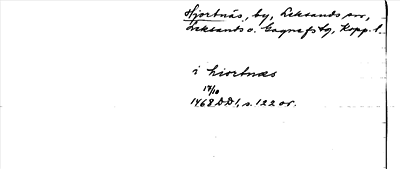 Hjortnäs, by, Leksands sn,
Leksands o. Gagnefs tg, Kopp. l.
i hiortnæs
14/10
1468 DD1, s. 122 or.